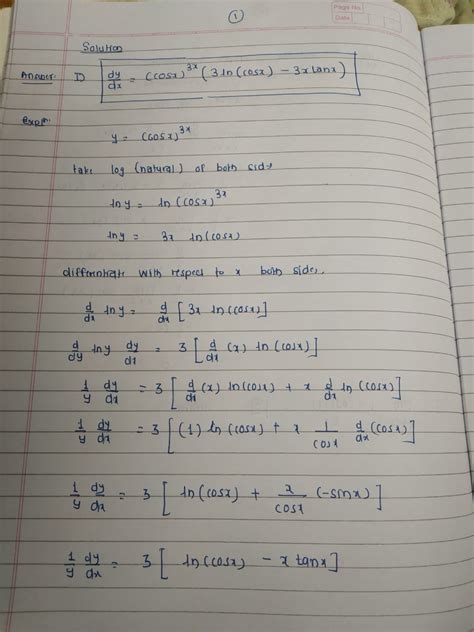 Page No.
Date
①
Solution
Answer: D) dy/dx = (cosx)^3x (3 ln(cosx) - 3x tanx)
y = (cosx)^3x
take log (natural) of both side
ln y = ln (cosx)^3x
ln y = 3x ln(cosx)
differentiate with respect to x both sides,
d/dx ln y = d/dx [3x ln(cosx)]
d/dy ln y dy/dx = 3[d/dx (x) ln(cosx)]
1/y dy/dx = 3[d/dx (x) ln(cosx) + x d/dx ln(cosx)]
1/y dy/dx = 3[(1) ln(cosx) + x 1/cosx d/dx (cosx)]
1/y dy/dx = 3[ln(cosx) + x/cosx (-sinx)]
1/y dy/dx = 3[ln(cosx) - x tanx]